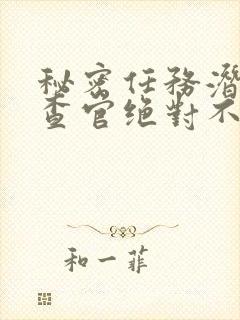 秘密任務潛
查官绝對不
和一菲